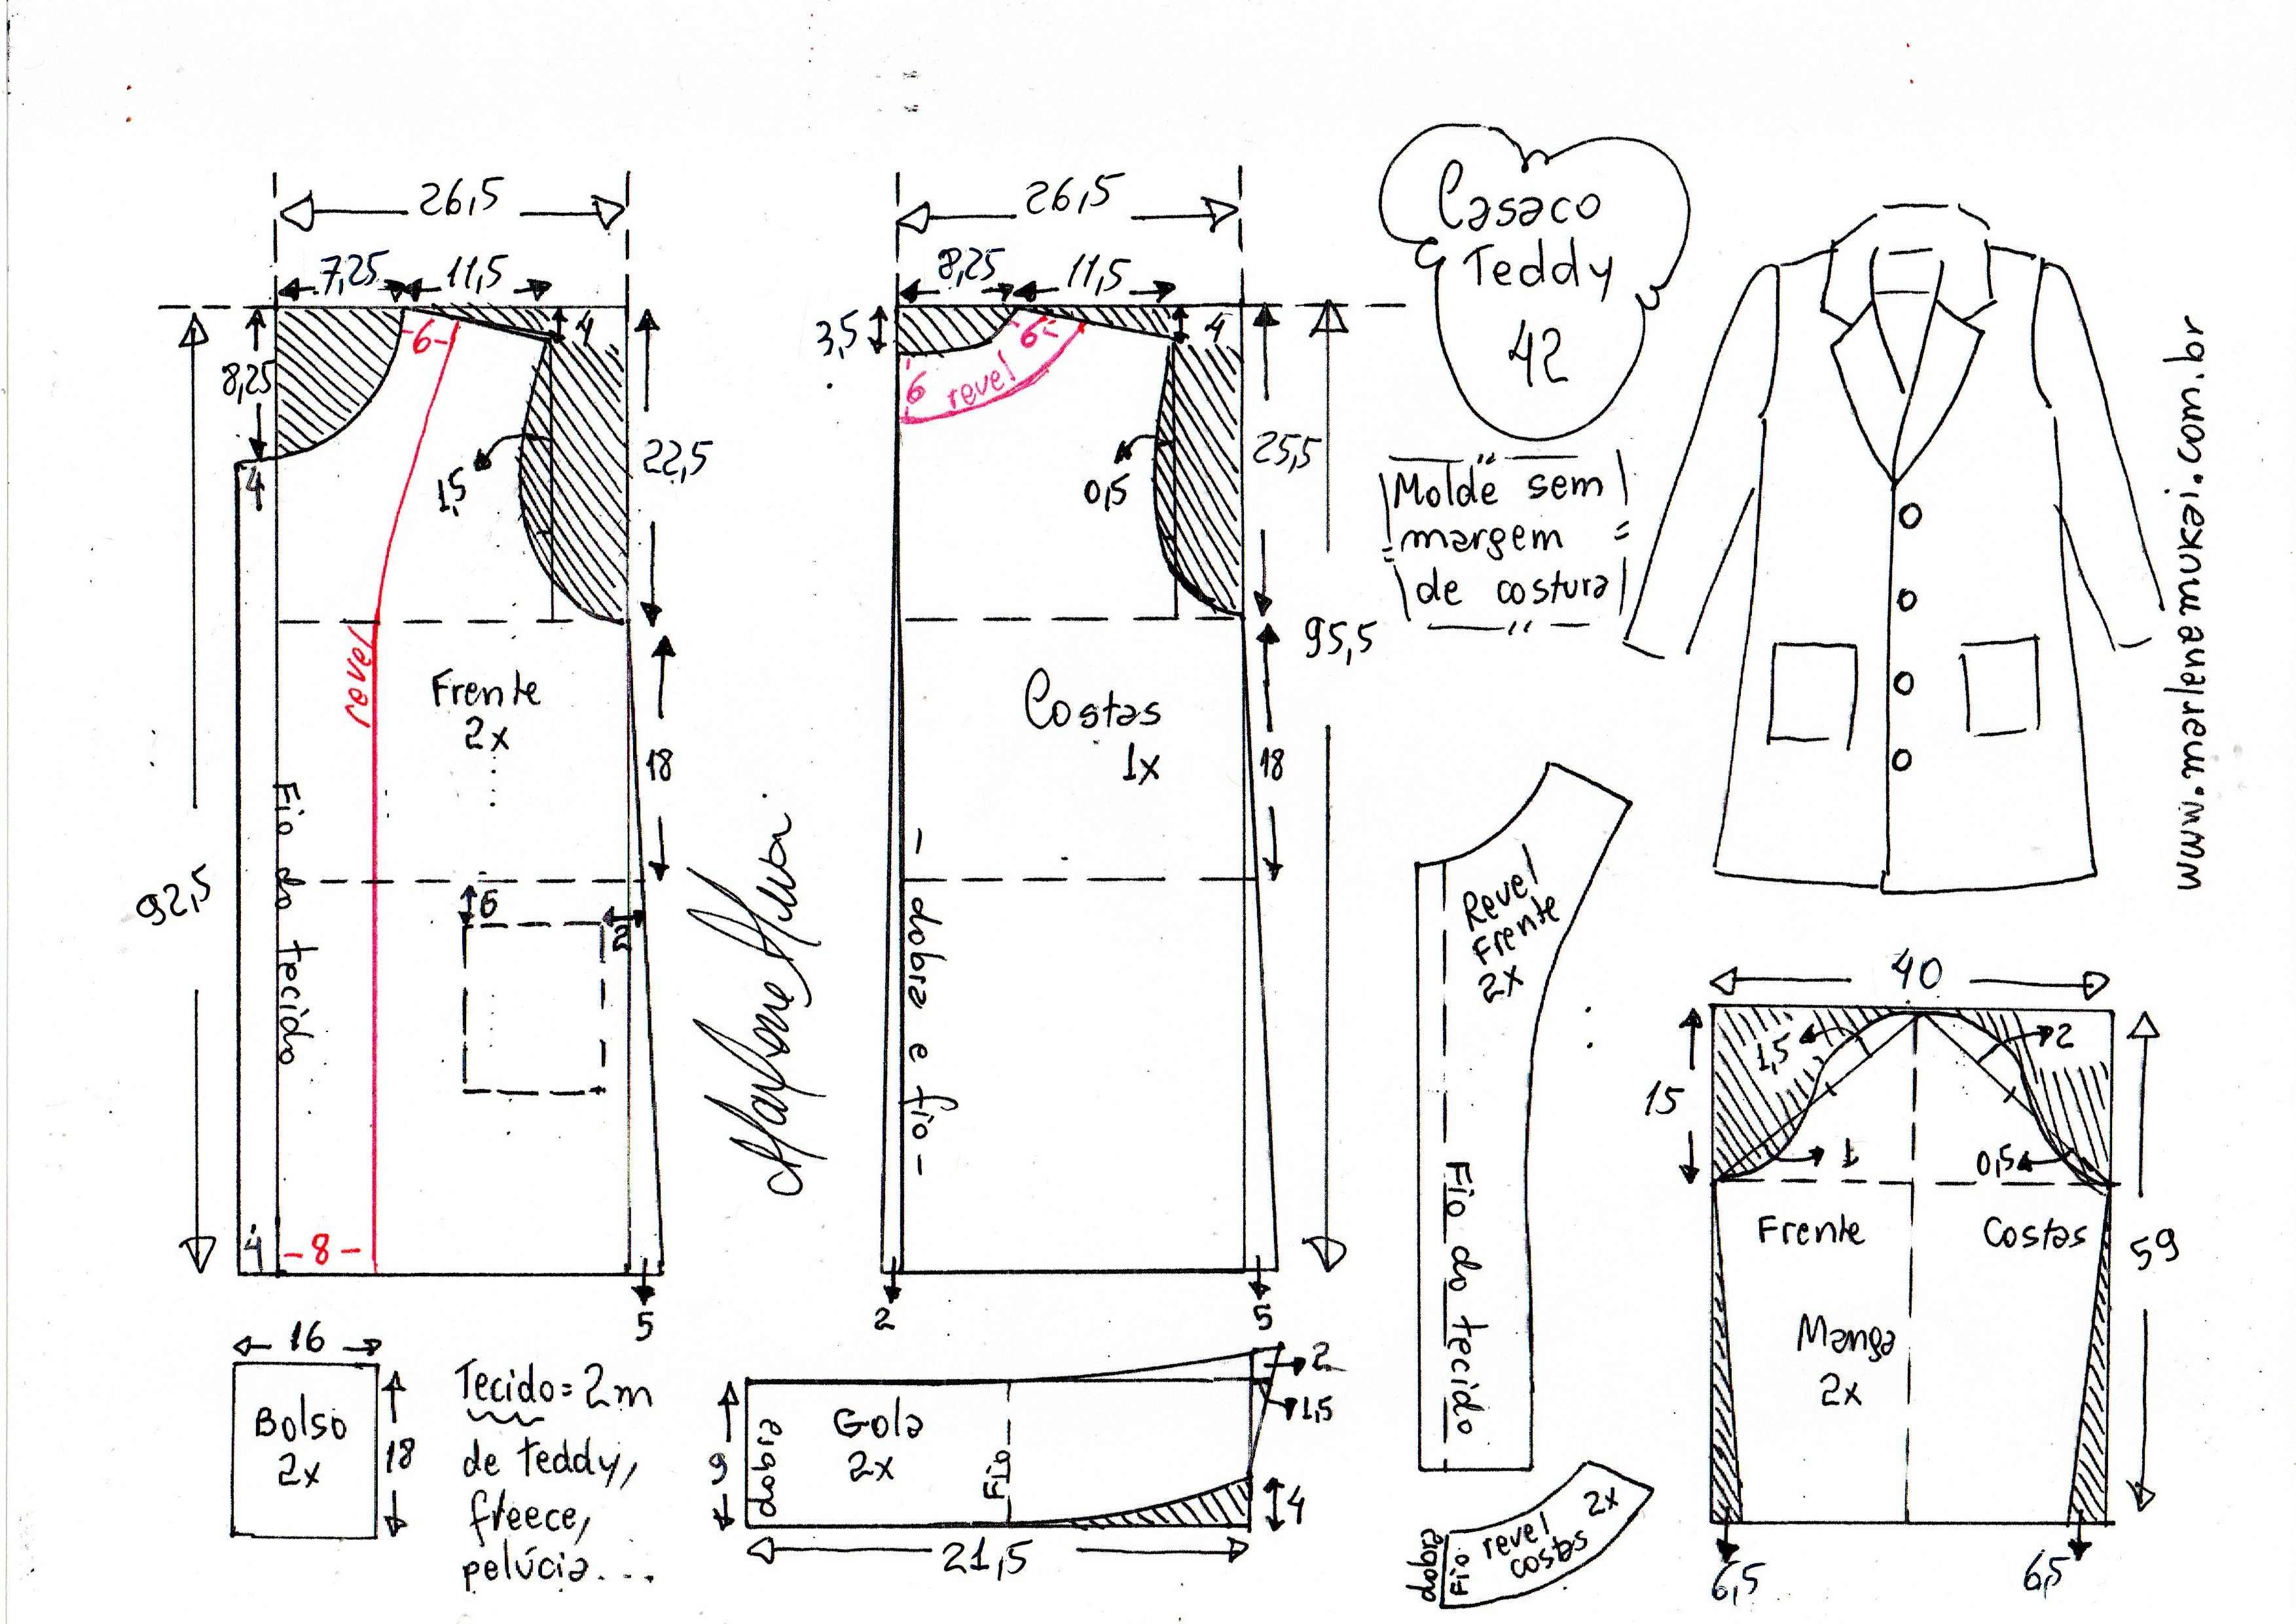 26,5
7,25
11,5
4
8,25
-6-
4
1,5
22,5
revel
Frente
2x
18
Fio do tecido
92,5
6
2
4
-8-
5
26,5
8,25
11,5
3,5
4
6
6
revel
0,5
25,5
95,5
Costas
1x
18
- dobra e fio -
2
5
Casaco
Teddy
42
Molde sem
margem
de costura
www.marlenemukai.com.br
Marlene Mukai
Revel
Frente
2x
Fio do tecido
40
1,5
2
15
1
0,5
Frente
Costas
59
Manga
2x
6,5
6,5
16
Bolso
2x
18
Tecido = 2m
de teddy,
freece,
pelúcia...
2
1,5
Gola
2x
9
dobra
Fio
4
21,5
2x
revel
costas
dobra
Fio